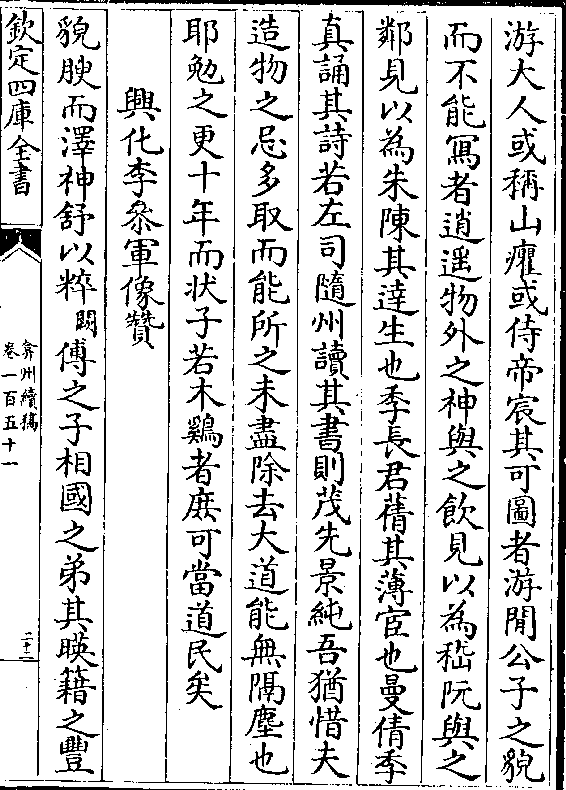 游大人或稱山癯或侍帝宸其可圖者游閒公子之貌
而不能寫者逍遥物外之神與之飲見以為嵇阮與之
鄰見以為朱陳其達生也季長君蒨其薄宦也曼倩季
真誦其詩若左司隨州讀其書則茂先景純吾猶惜夫
造物之忌多取而能所之未盡除去大道能無隔塵也
耶勉之更十年而状子若木鷄者庶可當道民矣
興化李叅軍像贊
貌腴而澤神舒以粹闕傅之子相國之弟其暎籍之豐
欽定四庫全書
弇州續稿
卷一百五十一
二十二